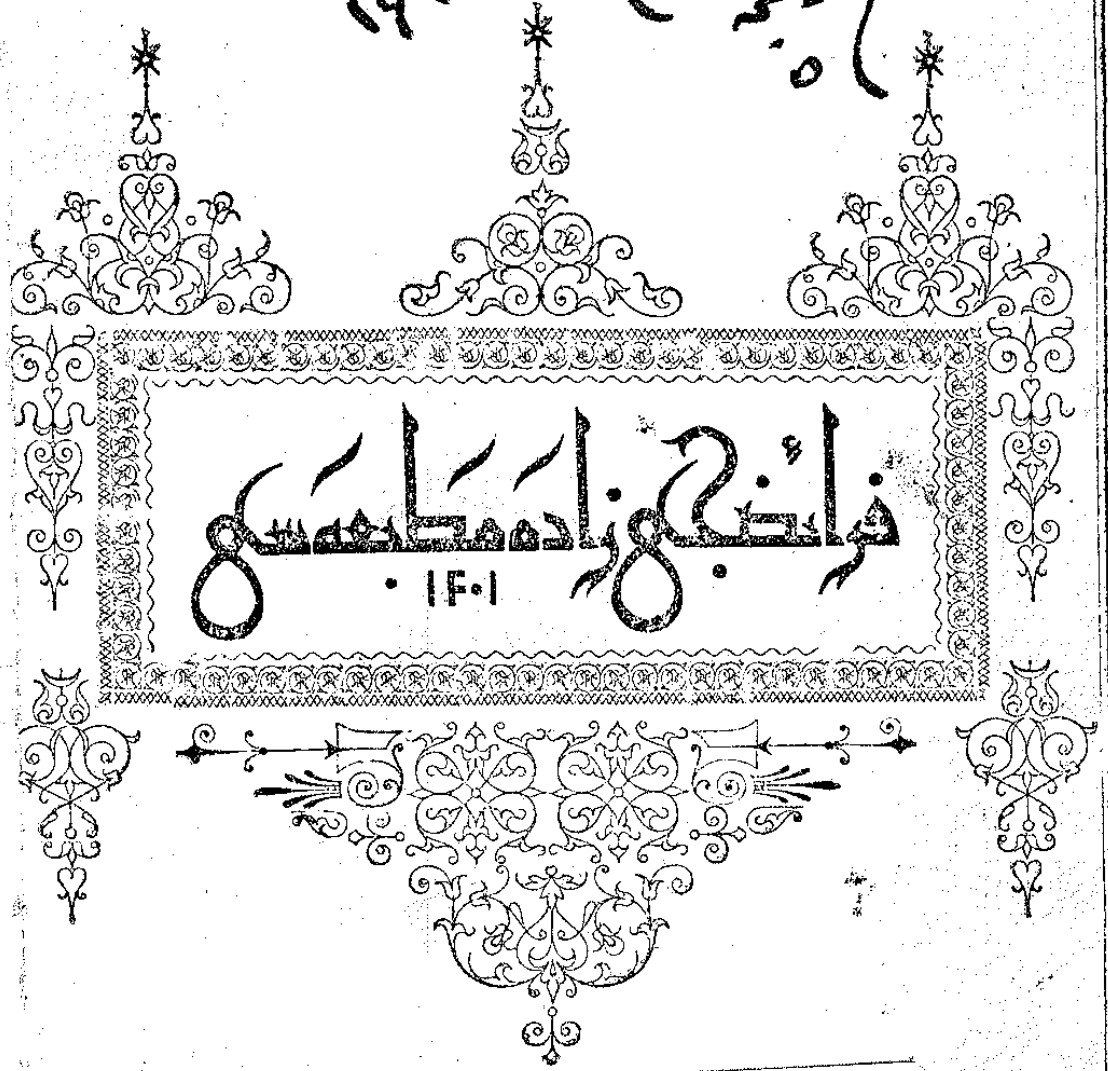 فرائضجی زاده مطبعه سی
۱۳۰۱